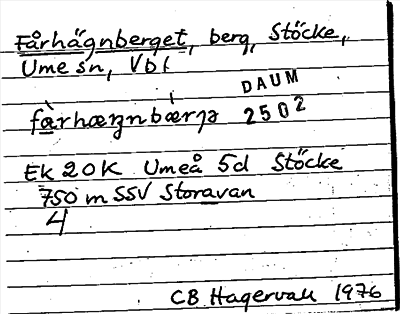 Fårhägnberget, berg, Stöcke,
Ume sn, Vbt
DAUM
2502
Ek 20K Umeå 5d Stöcke
750 m SSV Storavan
4
CB Hagervall 1976